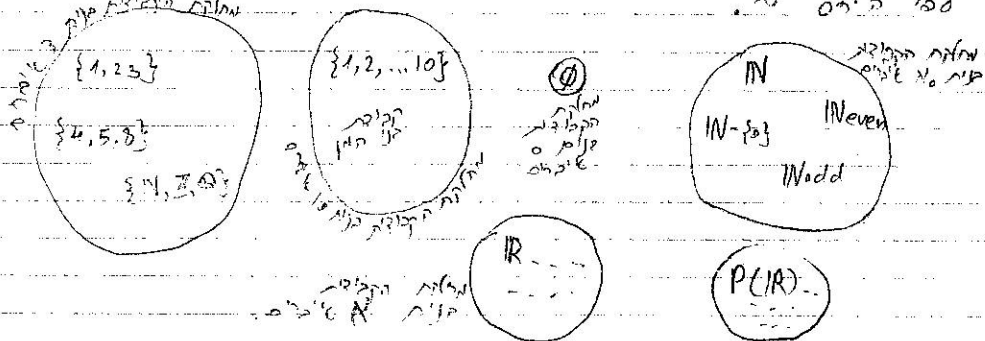 מחלקת הקבוצות בנות 3 איברים
{1,2,3}
{4,5,8}
{N,Z,Q}
{1,2,...10}
קבוצת
בני המן
מחלקת הקבוצות בנות 10 איברים
Ø
מחלקת
הקבוצות
בנות 0
איברים
מחלקת הקבוצות
בנות ℵ₀ איברים
ℕ
ℕ-{3}
ℕeven
ℕodd
ℝ
מחלקת הקבוצות
בנות ℵ איברים.
P(ℝ)